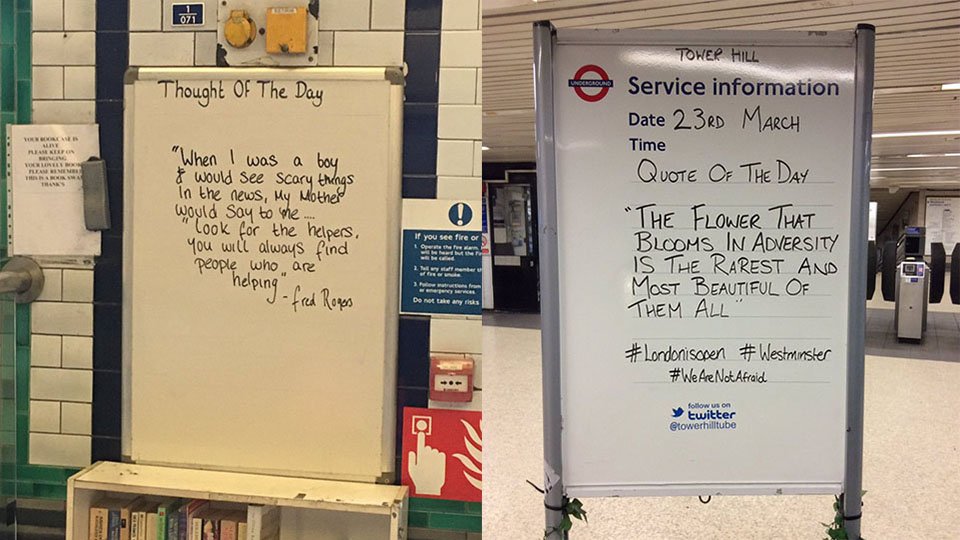 1
071
Thought Of The Day
"When I was a boy
I would see scary things
In the news, My Mother
would say to me ....
"Look for the helpers,
You will always find
people who are
helping"
- Fred Rogers
YOUR BOOKCASE IS
ALIVE
PLEASE KEEP ON
BRINGING
YOUR LOVELY BOOK
PLEASE REMEMBER
THIS IS A BOOK AWAY
THANK'S
If you see fire or
1. Operate the fire alarm.
will be heard but the Fir
will be called.
2. Tell any staff member
of fire or smoke.
3. Follow instructions from
or emergency services.
Do not take any risks
TOWER HILL
UNDERGROUND
Service information
Date 23RD MARCH
Time
QUOTE OF THE DAY
"THE FLOWER THAT
BLOOMS IN ADVERSITY
IS THE RAREST AND
MOST BEAUTIFUL OF
THEM ALL"
#Londonisopen #Westminster
#WeAreNotAfraid
follow us on
twitter
@towerhilltube